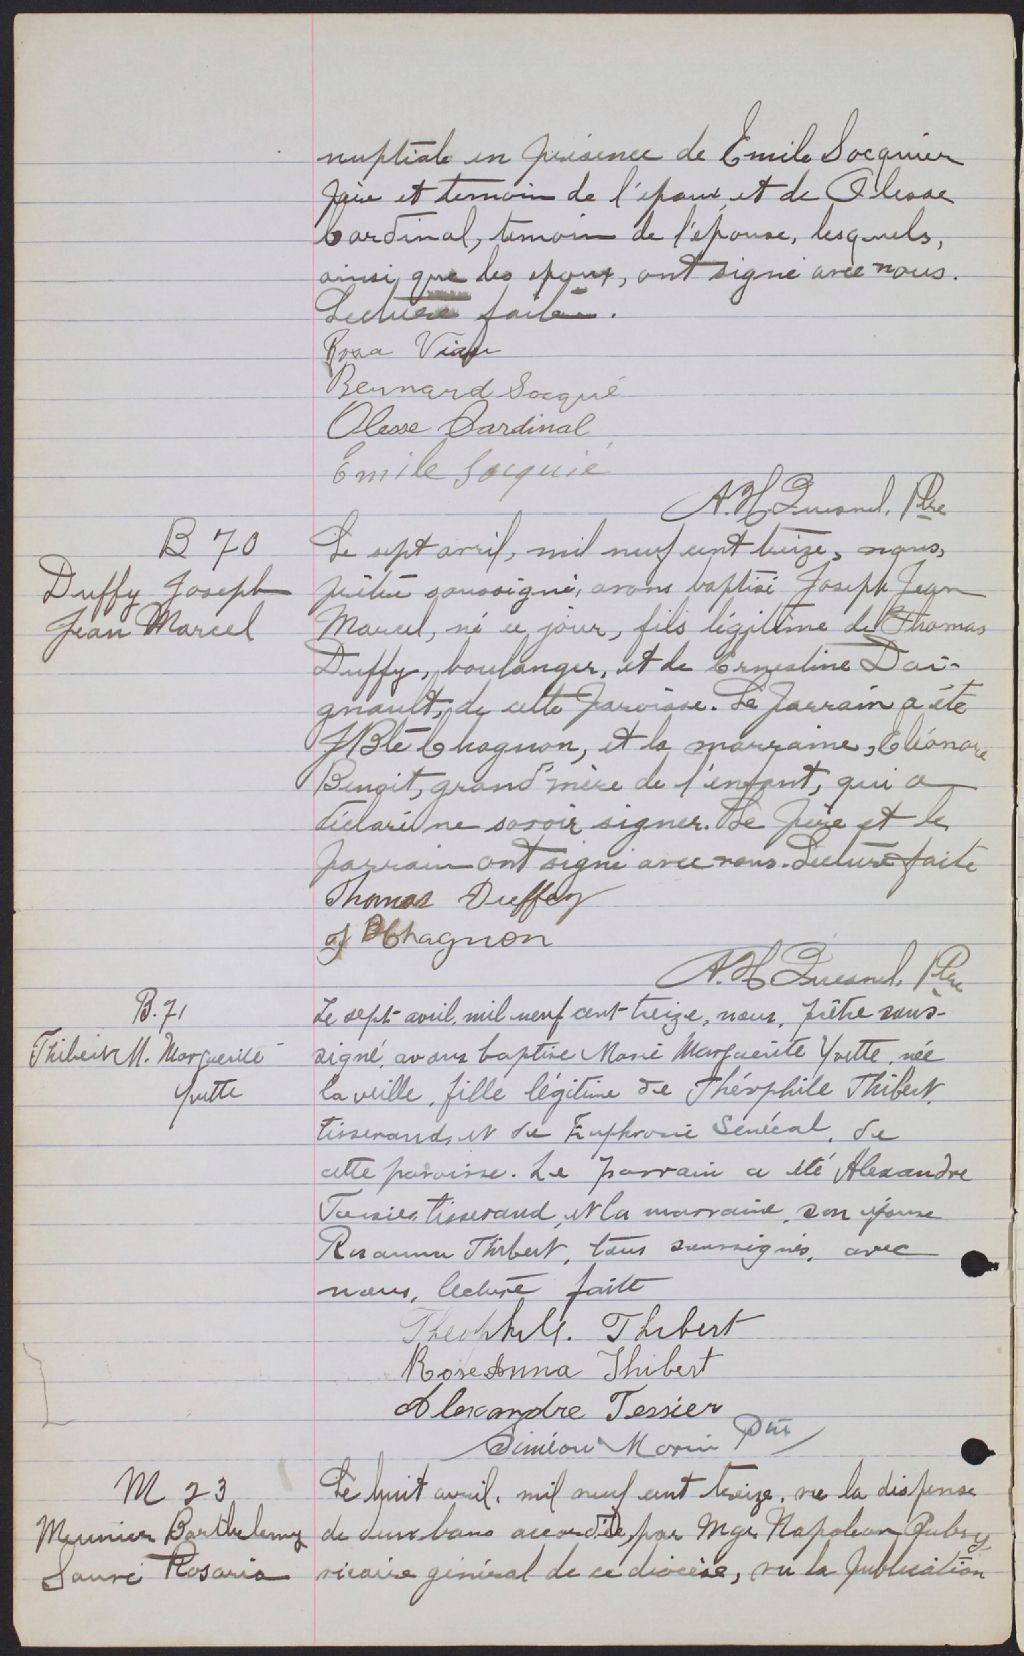 nuptiale en présence de Emile Socquier
père et temoin de l'époux, et de Olesse
Cardinal, temoin de l'épouse, lesquels,
ainsi que les époux, ont signé avec nous.
Lecture faite.
Rosa Viau
Bernard Socqué
Olesse Cardinal
Emile Socquié
A. H. Quesnel, Ptre
B 70
Duffy Joseph
Jean Marcel
Le sept avril, mil neuf cent treize, nous,
prêtre soussigné, avons baptisé Joseph Jean
Marcel, né ce jour, fils légitime de Thomas
Duffy, boulanger, et de Ernestine Dai-
gnault, de cette paroisse. Le parrain a été
J Bte Chagnon, et la marraine, Eléonore
Benoit, grand'mère de l'enfant, qui a
déclaré ne savoir signer. Le père et le
parrain ont signé avec nous. Lecture faite
Thomas Duffey
J B Chagnon
A. H. Quesnel, Ptre
B. 71
Thibert M. Marguerite
Yvette
Le sept avril, mil neuf cent treize, nous, prêtre sous-
signé, avons baptisé Marie Marguerite Yvette, née
la veille, fille légitime de Théophile Thibert,
tisserand, et de Euphrosie Sénécal, de
cette paroisse. Le parrain a été Alexandre
Tessier, tisserand, et la marraine, son épouse
Rosanna Thibert, tous soussignés, avec
nous, lecture faite
Théophile. Thibert
Rose Anna Thibert
Alexandre Tessier
Siméon Morin Ptre
M 23
Meunier Barthelemy
Sauvé Rosaria
Le huit avril, mil neuf cent treize, vu la dispense
de deux bans accordée par Mgr Napoleon
vicaire général de ce diocèse, vu la publication